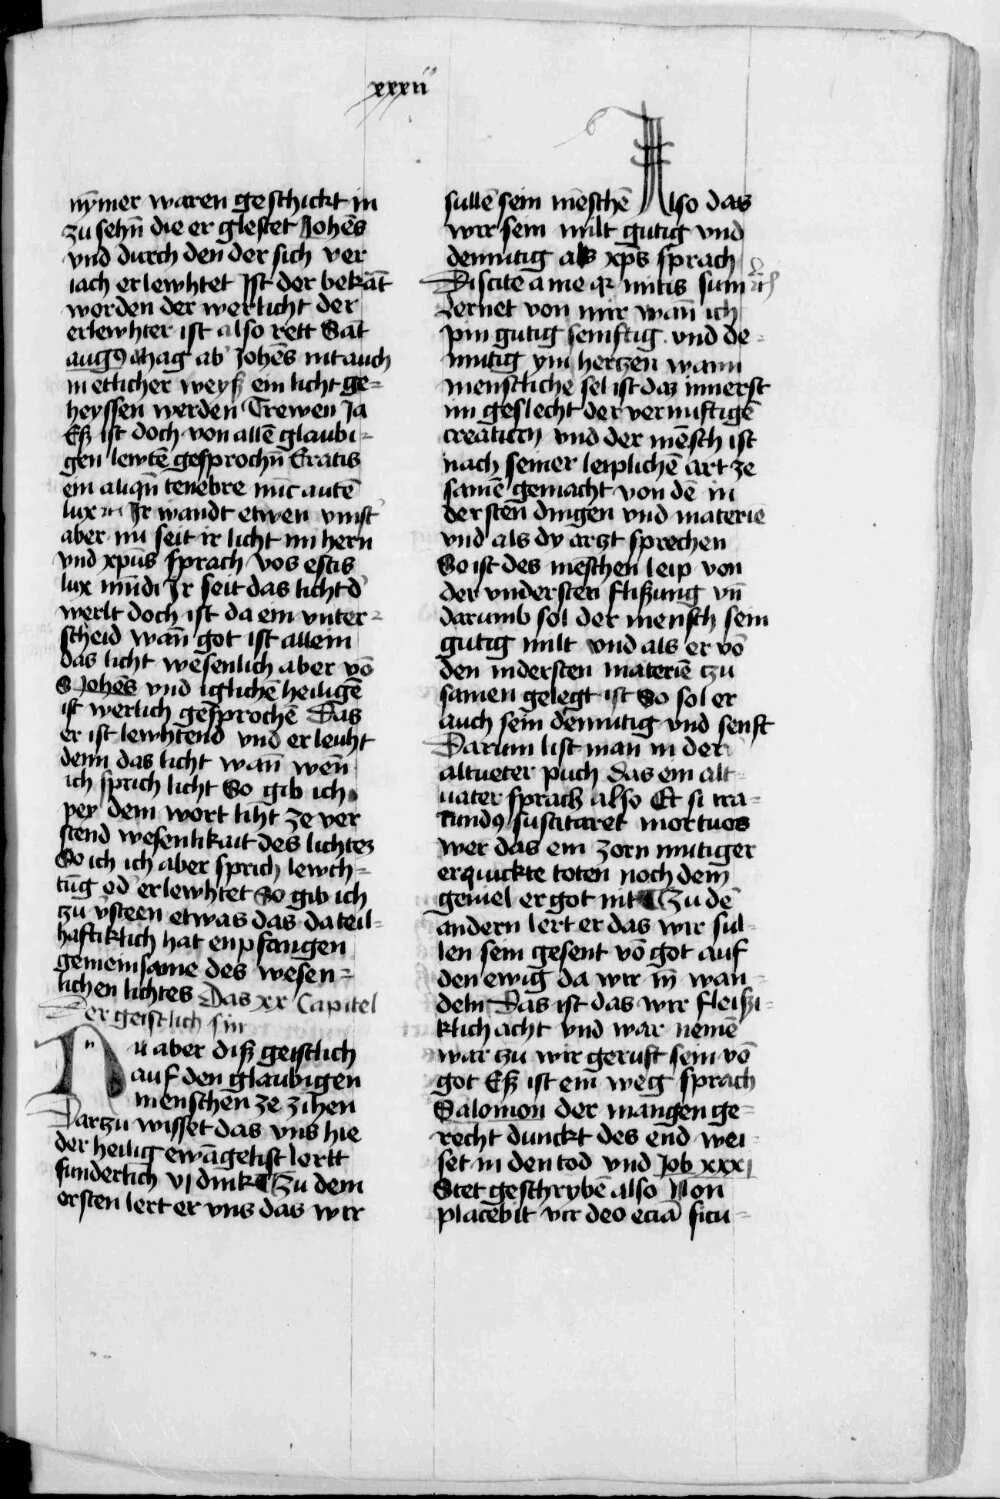 xxxii
nȳmer waren geschickt in
zu sehn̄ die er glestet Johēs
vnd durch den der sich ver
iach erlewhtet Ist der bekāt
worden der werlicht der
erlewhter ist also rett Sāt
augꝰ Mag ab Johēs nit auch
in etlicher weyß ein licht ge=
heyssen werden Trewen Ja
Eß ist doch von allē glaubi=
gen lewtē gesprochn̄ Eratis
em aliqn̄ tenebre nūc autē
lux Ir wandt etwen vinst
aber nu seit ir licht im hern
vnd xpūs sprach vos estis
lux mūdi Ir seit das licht d
werlt doch ist da ein vnter=
scheid wan̄ got ist allein
das licht wesenlich aber vō
S Johēs vnd iglichē heiligē
ist werlich gesprochē Das
er ist lewhtend vnd erleuht
denn das licht wan̄ wen̄
ich sprich licht So gib ich
pey dem wort liht ze ver
stend wesenlikait des lichtez
So ich ich aber sprich lewch=
tūg od erlewhtet So gib ich
zu v̄steen etwas das da teil=
haftiklich hat enpfangen
gemeinsame des wesen=
lichen lichtes Das xx Capitel
Der geistlich sin
Nu aber diß geistlich
auf den glaubigen
menschen ze zihen
Darzu wisset das vns hie
der heilig ewāgelist lertt
sunderlich vj dink Zu dem
ersten lert er vns das wir
sullē sein mēschē Also das
wir sein milt gutig vnd
demutig als xpūs sprach
Discite a me qr mitis sum
Lernet von mir wan̄ ich
pin gutig semftig vnd de=
mutig ym hertzen wann
menschliche sel ist daz innerst
im geslecht der vernuftigē
creaturn vnd der mēsch ist
nach seiner leiplichē art ze
samē gemacht von dē in
dersten dingen vnd materie
vnd als dy arzt sprechen
So ist des mēschen leip von
der vndersten flißung vn̄
darumb sol der mensch sein
gutig milt vnd als er vō
den indersten materiē zu
samen gelegt ist So sol er
auch sein demutig vnd senft
Darum list man in der
altueter puch das ein alt=
uater sprach also Et si ira=
cundꝰ suscitaret mortuos
wer das ein zorn mutiger
erquickte toten noch dem
geuiel er got nit Zu dē
andern lert er das wir sul=
len sein gesent vō got auf
den ewig da wir in̄ wan=
deln Das ist das wir fleißi=
klich acht vnd war nemē
war zu wir geruft sein vō
got Eß ist ein weg sprach
Salomon der mangen ge=
recht dunckt des end wei=
set in den tod vnd Job xxxj
Stet geschrybē also Non
placebit vir deo eciā sicu=